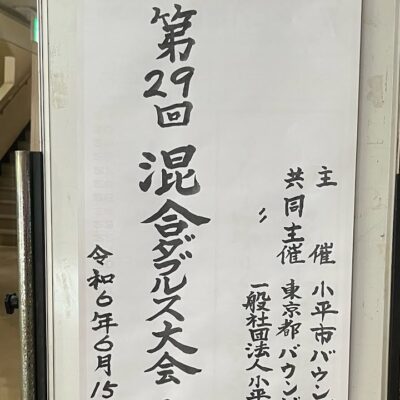 主催 小平市バウン
共同主催 東京都バウン
〃 一般社団法人小平
第29回 混合ダブルス大会
令和6年6月15